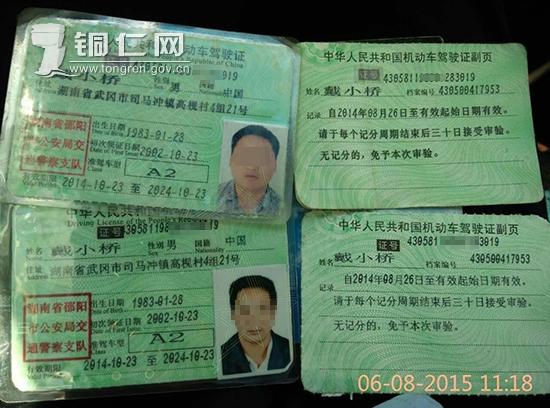 铜仁网
www.tongren.gov.cn
中华人民共和国机动车驾驶证
Republic of China
919
戴小桥 性别 男 国籍 中国
湖南省武冈市司马冲镇高枧村4组21号
湖南省邵阳
市公安局交
通警察支队
出生日期 1983-01-28
初次领证日期 2002-10-23
准驾车型 A2
有效期限 2014-10-23 至 2024-10-23
中华人民共和国机动车驾驶证副页
证号 4305811 283919
姓名 戴小桥 档案编号 430500417953
记录 自2014年08月26日至有效起始日期有效。
请于每个记分周期结束后三十日接受审验。
无记分的，免予本次审验。
中华人民共和国机动车驾驶证
Driving License of the People's Republic of China
证号 43058119
姓名 戴小桥 性别 男 国籍 中国
住址 湖南省武冈市司马冲镇高枧村4组21号
湖南省邵阳
市公安局交
通警察支队
出生日期 1983-01-28
初次领证日期 2002-10-23
准驾车型 A2
有效期限 2014-10-23 至 2024-10-23
中华人民共和国机动车驾驶证副页
证号 430581 3919
姓名 戴小桥 档案编号 430500417953
记录 自2014年08月26日至有效起始日期有效。
请于每个记分周期结束后三十日接受审验。
无记分的，免予本次审验。
06-08-2015 11:18